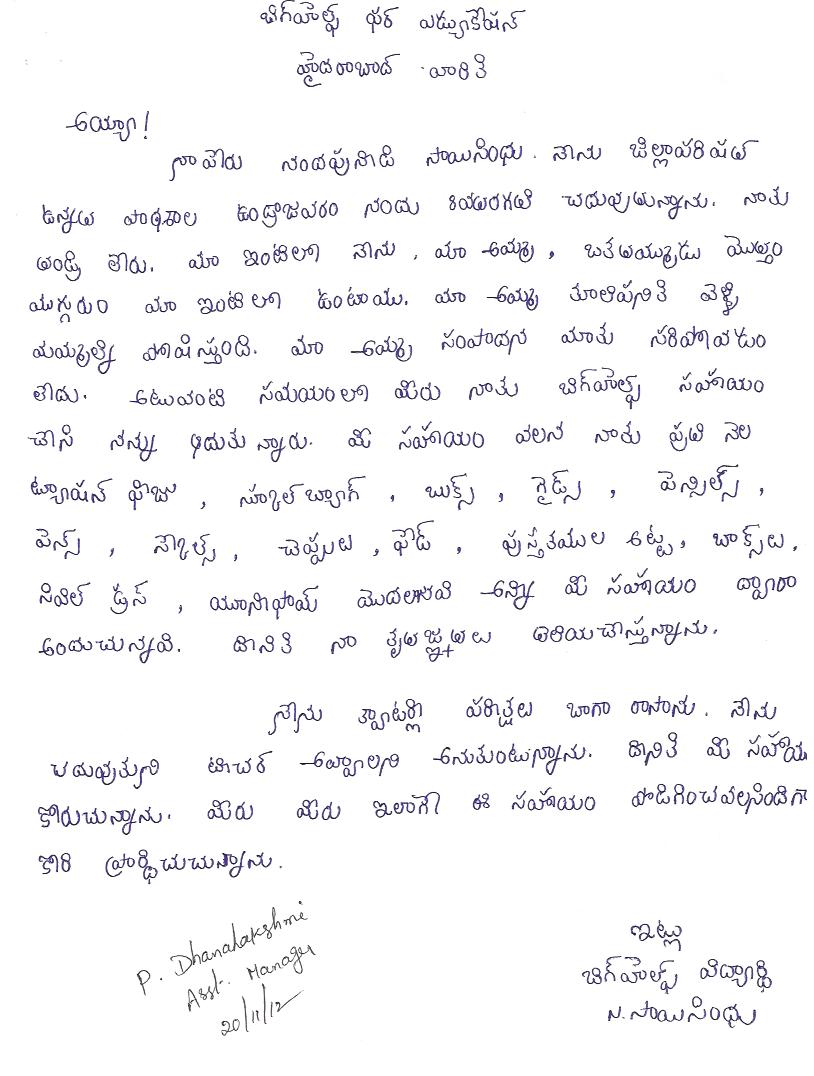 బిగ్‌హెల్ప్ ఫర్ ఎడ్యుకేషన్
హైదరాబాద్ వారికి
అయ్యా!
నా పేరు నందపునాడి సాయిసింధు. నేను జిల్లాపరిషత్
ఉన్నత పాఠశాల ఉండ్రాజవరం నందు 8వతరగతి చదువుతున్నాను. నాకు
తండ్రి లేరు. మా ఇంటిలో నేను, మా అమ్మ, ఒకేతమ్ముడు మొత్తం
ముగ్గురం మా ఇంటిలో ఉంటాము. మా అమ్మ కూలిపనికి వెళ్ళి
మమ్మల్ని పోషిస్తుంది. మా అమ్మ సంపాదన మాకు సరిపోవడం
లేదు. అటువంటి సమయంలో మీరు నాకు బిగ్‌హెల్ప్ సహాయం
చేసి నన్ను ఆదుకున్నారు. మీ సహాయం వలన నాకు ప్రతి నెల
ట్యూషన్ ఫీజు, స్కూల్‌బ్యాగ్, బుక్స్, గైడ్స్, పెన్సిల్స్,
పెన్స్, స్కేల్స్, చెప్పులు, ఫౌడ్, పుస్తకముల అట్ట, బాక్స్‌లు,
సివిల్ డ్రస్, యూనిఫామ్ మొదలగునవి అన్ని మీ సహాయం ద్వారా
అందుచున్నవి. దానికి నా కృతజ్ఞతలు తెలియచేస్తున్నాను.
నేను క్వాటర్లి పరీక్షలు బాగా రాసాను. నేను
చదువుకుని టీచర్ అవ్వాలని అనుకుంటున్నాను. దానికి మీ సహాయం
కోరుచున్నాను. మీరు మీరు ఇలాగే ఈ సహాయం పొడిగించవలసిందిగా
కోరి ప్రార్థిచుచున్నాను.
ఇట్లు
బిగ్‌హెల్ప్ విద్యార్థి
N. సాయిసింధు
P. Dhanalakshmi
Asst. Manager
20/11/12